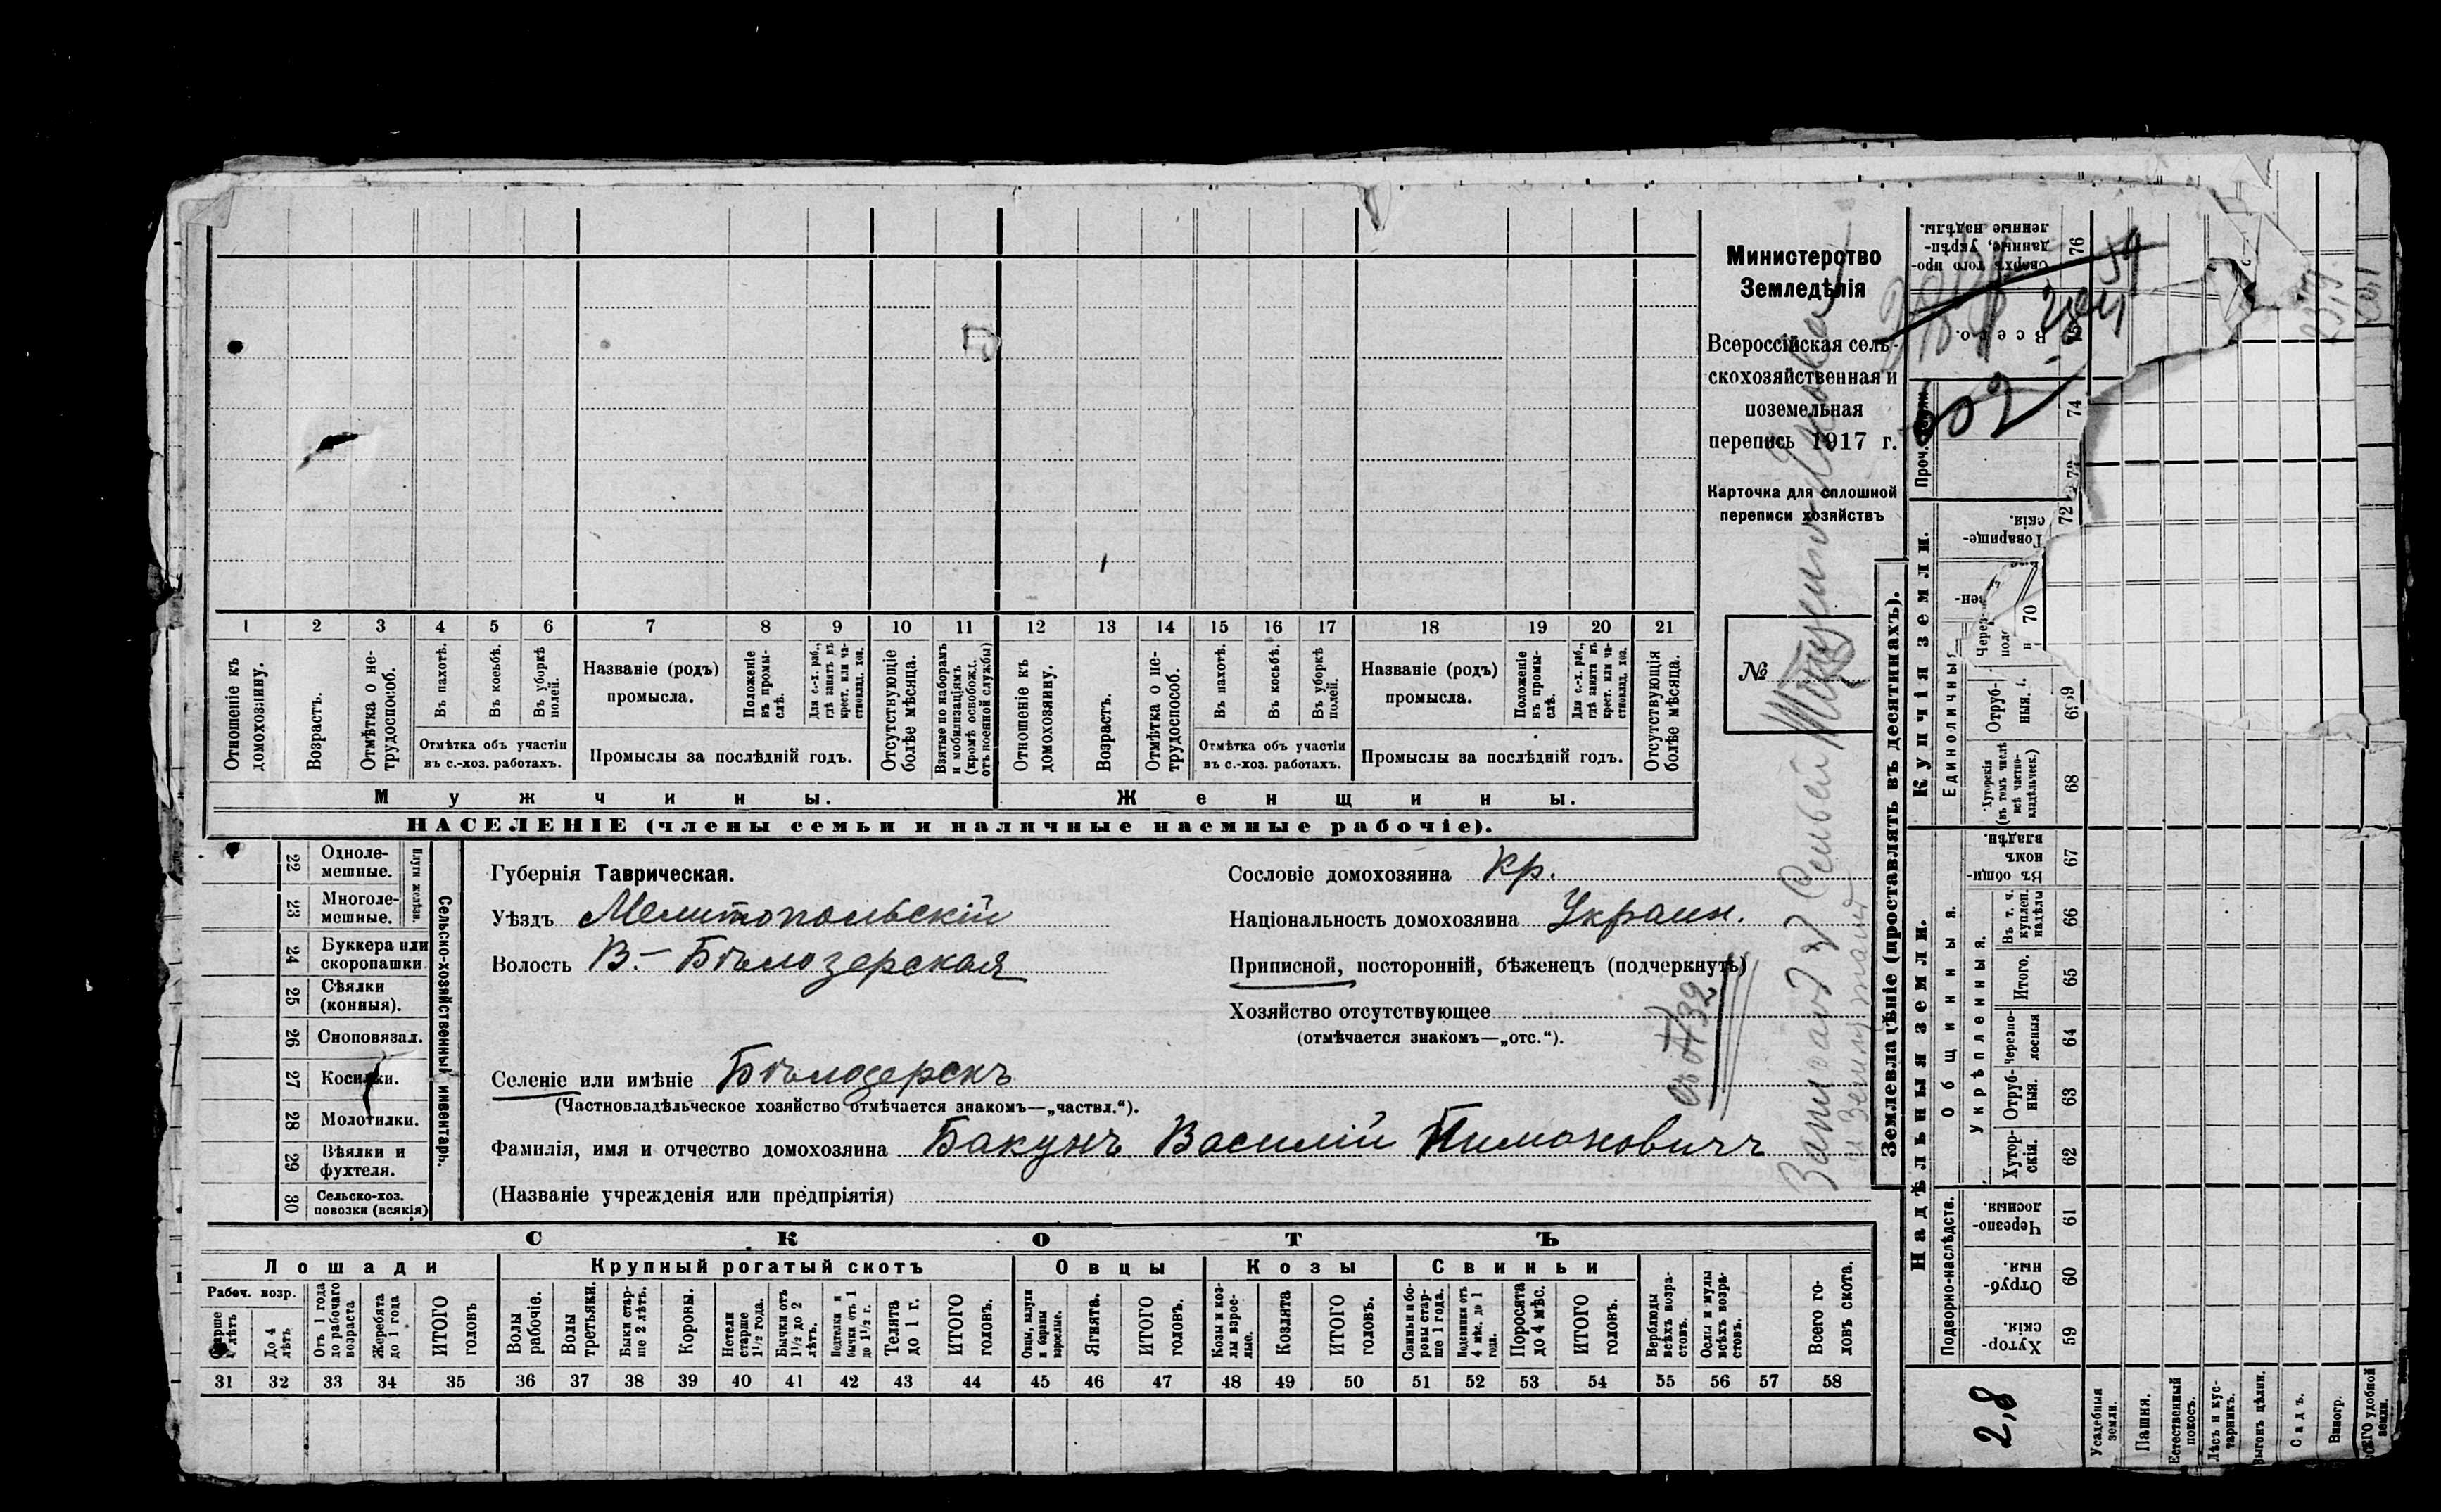 Министерство
Земледѣлія
Всероссійская сель-
скохозяйственная и
поземельная
перепись 1917 г.
Карточка для сплошной
переписи хозяйствъ
№
1 2 3 4 5 6 7 8 9 10 11 12 13 14 15 16 17 18 19 20 21
Отношеніе къ домохозяину.
Возрастъ.
Отмѣтка о не-трудоспособ.
Въ пахотѣ.
Въ косьбѣ.
Въ уборкѣ полей.
Отмѣтка объ участіи
въ с.-хоз. работахъ.
Названіе (родъ)
промысла.
Положеніе въ промы-слѣ.
Для с.-х. раб., гдѣ занятъ въ крест. или ча-стновлад. хоз.
Промыслы за послѣдній годъ.
Отсутствующіе болѣе мѣсяца.
Взятые по наборамъ и мобилизаціямъ (кромѣ освобожд. отъ военной службы)
Отношеніе къ домохозяину.
Возрастъ.
Отмѣтка о не-трудоспособ.
Въ пахотѣ.
Въ косьбѣ.
Въ уборкѣ полей.
Отмѣтка объ участіи
въ с.-хоз. работахъ.
Названіе (родъ)
промысла.
Положеніе въ промы-слѣ.
Для с.-х. раб., гдѣ занятъ въ крест. или ча-стновлад. хоз.
Промыслы за послѣдній годъ.
Отсутствующія болѣе мѣсяца.
Мужчины.
Женщины.
НАСЕЛЕНІЕ (члены семьи и наличные наемные рабочіе).
22 Одноле-мешные.
23 Многоле-мешные.
Плуги желѣзн.
24 Буккера или скоропашки
25 Сѣялки (конныя).
26 Сноповязал.
27 Косилки.
28 Молотилки.
29 Вѣялки и фухтеля.
30 Сельско-хоз. повозки (всякія)
Сельско-хозяйственный инвентарь.
Губернія Таврическая.
Уѣздъ Мелитопольскій
Волость В.-Бѣлозерская
Селеніе или имѣніе Бѣлозерскъ
(Частновладѣльческое хозяйство отмѣчается знакомъ—„частвл.“).
Фамилія, имя и отчество домохозяина Бакунъ Василій Пимоновичъ
(Названіе учрежденія или предпріятія)
Сословіе домохозяина Кр.
Національность домохозяина Украин.
Приписной, посторонній, бѣженецъ (подчеркнуть)
Хозяйство отсутствующее
(отмѣчается знакомъ—„отс.“).
СКОТЪ
Лошади
Крупный рогатый скотъ
Овцы
Козы
Свиньи
Рабоч. возр.
Старше лѣтъ
До 4 лѣтъ
Отъ 1 года до рабочаго возраста
Жеребята до 1 года
ИТОГО головъ
Волы рабочіе.
Волы третьяки.
Быки стар-ше 2 лѣтъ.
Коровы.
Нетели старше 1½ года.
Бычки отъ 1½ до 2 лѣтъ.
Подтелки и бычки отъ 1 до 1½ г.
Телята до 1 г.
ИТОГО головъ.
Овцы, валухи и бараны взрослые.
Ягнята.
ИТОГО головъ.
Козы и коз-лы взрос-лые.
Козлята
ИТОГО головъ.
Свиньи и бо-ровы стар-ше 1 года.
Подсвинки отъ 4 мѣс. до 1 года.
Поросята до 4 мѣс.
ИТОГО головъ.
Верблюды всѣхъ возра-стовъ.
Ослы и мулы всѣхъ возра-стовъ.
Всего го-ловъ скота.
31 32 33 34 35 36 37 38 39 40 41 42 43 44 45 46 47 48 49 50 51 52 53 54 55 56 57 58
Землевладѣніе (проставлять въ десятинахъ).
Надѣльныя земли.
Купчія земли.
Подворно-наслѣдств.
Общинныя.
Укрѣпленныя.
Единоличныя
Хутор-скія. 59
Отруб-ныя. 60
Черезпо-лосныя. 61
Хутор-скія. 62
Отруб-ныя. 63
Черезпо-лосныя 64
Итого. 65
Въ т. ч. куплен. надѣлы 66
Въ общи-номъ владѣн. 67
Хуторскія (въ томъ числѣ всѣ частно-владѣльческ.) 68
Отруб-ныя. 69
70
Товарище-скія. 72
74
Всего.
Сверхъ того про-данные, укрѣп-ленные надѣлы. 76
2,8
Усадебныя земли.
Пашня.
Естественный покосъ.
Лѣсъ и кус-тарникъ.
Выгонъ цѣлин.
Садъ.
Виногр.